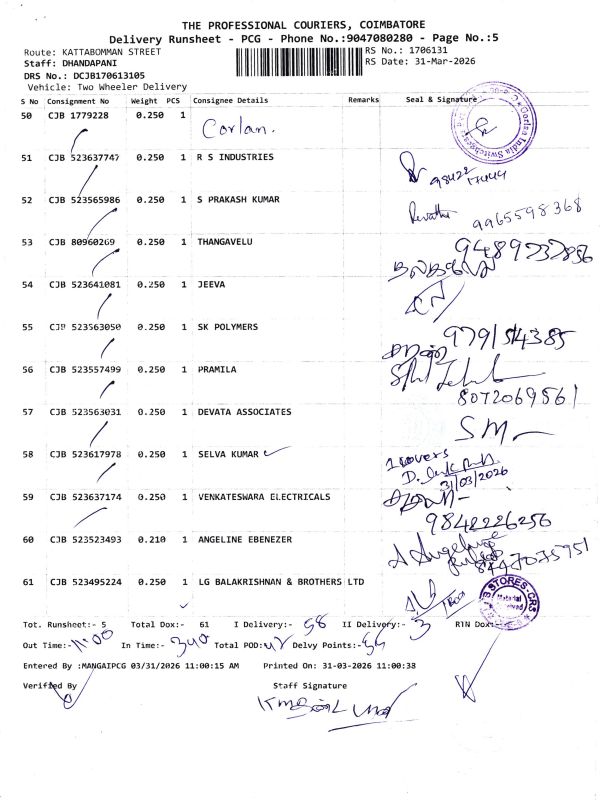 THE PROFESSIONAL COURIERS, COIMBATORE
Delivery Runsheet - PCG - Phone No.:9047080280 - Page No.:5
Route: KATTABOMMAN STREET
RS No.: 1706131
Staff: DHANDAPANI
RS Date: 31-Mar-2026
DRS No.: DCJB170613105
Vehicle: Two Wheeler Delivery
S No Consignment No Weight PCS Consignee Details Remarks Seal & Signature
50 CJB 1779228 0.250 1 Corlan.
51 CJB 523637747 0.250 1 R S INDUSTRIES
98422 17444
52 CJB 523565986 0.250 1 S PRAKASH KUMAR Revathi 9965598368
53 CJB 80960269 0.250 1 THANGAVELU 9489737856
54 CJB 523641081 0.250 1 JEEVA
55 CJB 523563050 0.250 1 SK POLYMERS
56 CJB 523557499 0.250 1 PRAMILA
8072069561
57 CJB 523563031 0.250 1 DEVATA ASSOCIATES SM
58 CJB 523617978 0.250 1 SELVA KUMAR
31/03/2026
59 CJB 523637174 0.250 1 VENKATESWARA ELECTRICALS
9842226256
60 CJB 523523493 0.210 1 ANGELINE EBENEZER
61 CJB 523495224 0.250 1 LG BALAKRISHNAN & BROTHERS LTD
STORES-CRS
Material Received
Tot. Runsheet:- 5 Total Dox:- 61 I Delivery:- 58 II Delivery:- 3 RTN Dox:-
Out Time:- 11:00 In Time:- 340 Total POD: Delvy Points:-
Entered By :MANGAIPCG 03/31/2026 11:00:15 AM Printed On: 31-03-2026 11:00:38
Verified By Staff Signature